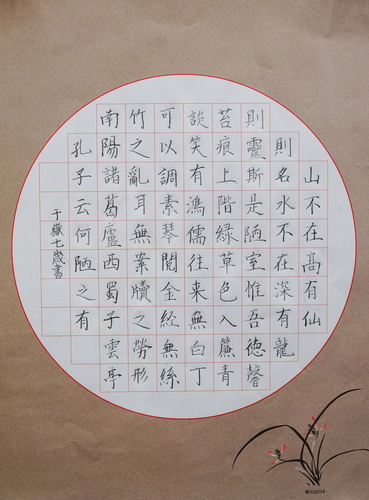 山不在高有仙
則名水不在深有龍
則靈斯是陋室惟吾德馨
苔痕上階綠草色入簾青
談笑有鴻儒往来無白丁
可以調素琴閱金經無絲
竹之亂耳無案牘之勞形
南陽諸葛廬西蜀子雲亭
孔子云何陋之有
七歲書